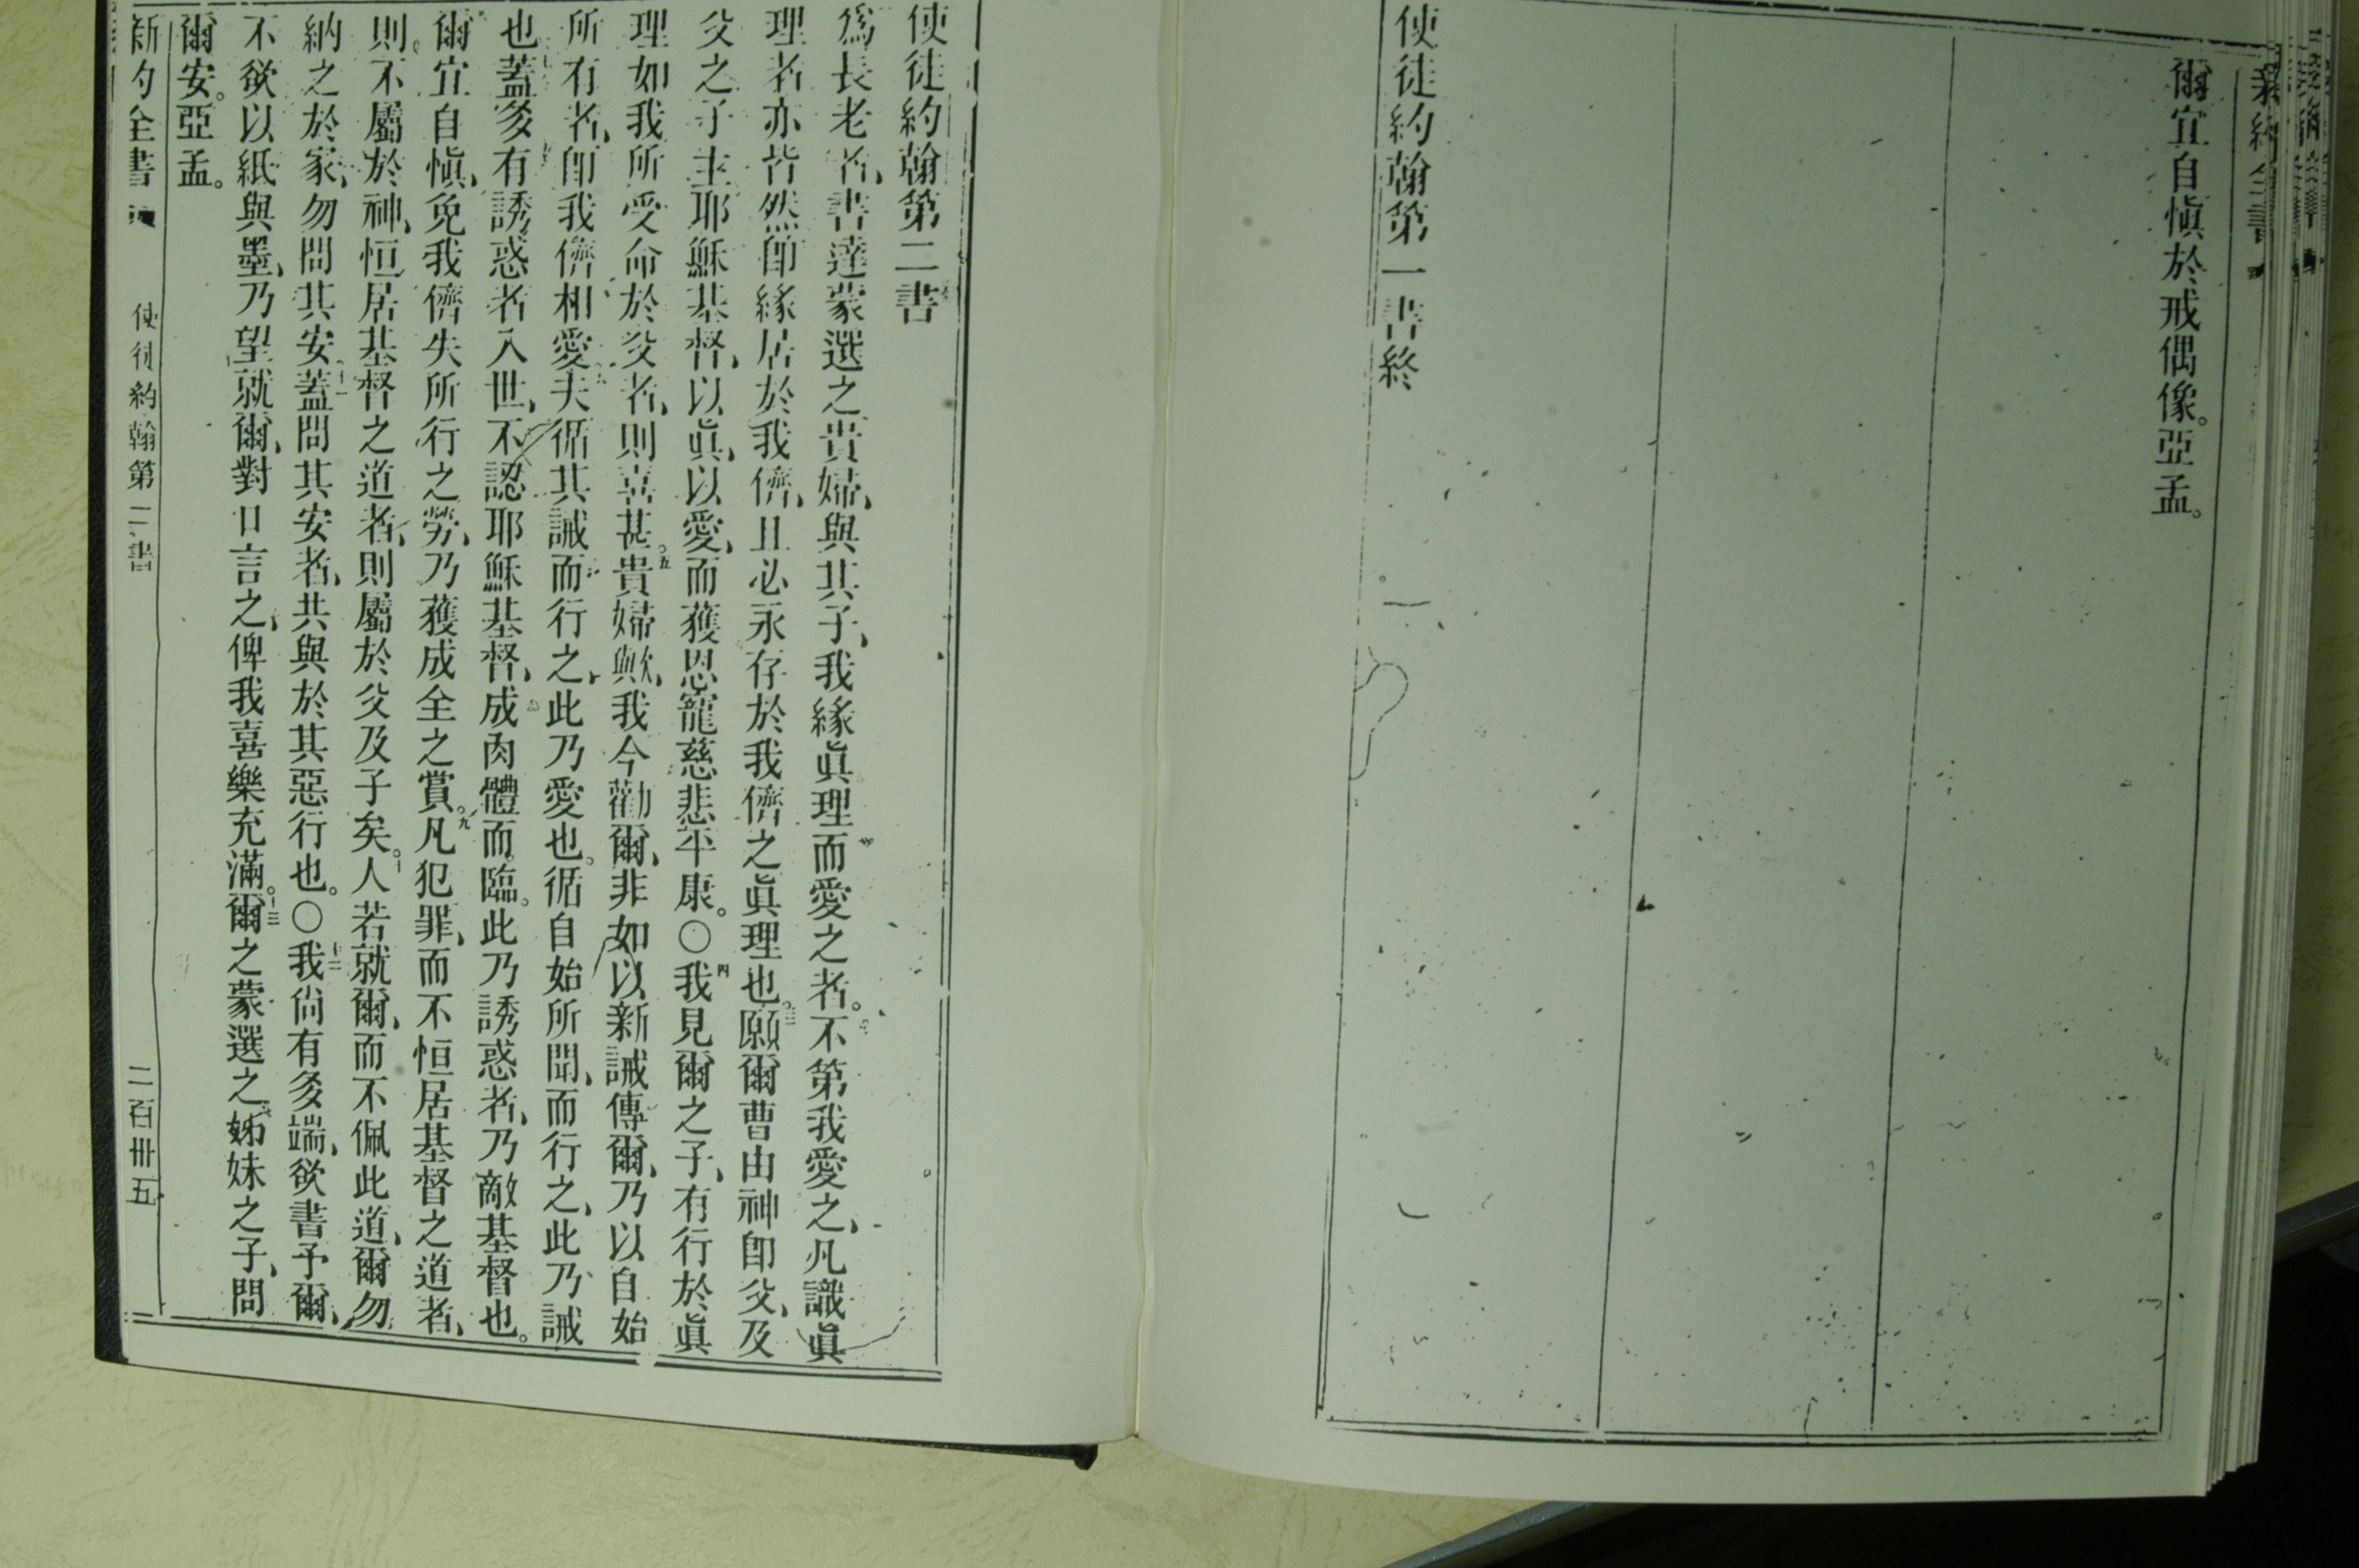 新約全書
爾宜自愼於戒偶像。亞孟。
使徒約翰第一書終
使徒約翰第二書
爲長老者、書達蒙選之貴婦、與其子、我緣眞理而愛之者。不第我愛之、凡識眞
理者亦皆然、卽緣居於我儕、且必永存於我儕之眞理也。三願爾曹由神卽父、及
父之子主耶穌基督、以眞、以愛、而獲恩寵慈悲平康。〇四我見爾之子、有行於眞
理如我所受命於父者、則喜甚。五貴婦歟、我今勸爾、非如以新誡傳爾、乃以自始
所有者、卽我儕相愛、夫循其誡而行之、此乃愛也。循自始所聞、而行之、此乃誡
也、蓋多有誘惑者入世、不認耶穌基督、成肉體而臨。此乃誘惑者、乃敵基督也。
爾宜自愼、免我儕失所行之勞、乃獲成全之賞。九凡犯罪、而不恒居基督之道者、
則不屬於神、恒居基督之道者、則屬於父及子矣。人若就爾、而不佩此道、爾勿
納之於家、勿問其安、十一蓋問其安者、共與於其惡行也。〇十二我尚有多端、欲書予爾、
不欲以紙與墨、乃望就爾、對口言之、俾我喜樂充滿。十三爾之蒙選之姊妹之子、問
爾安。亞孟。
新約全書 使徒約翰第二書 二百卅五